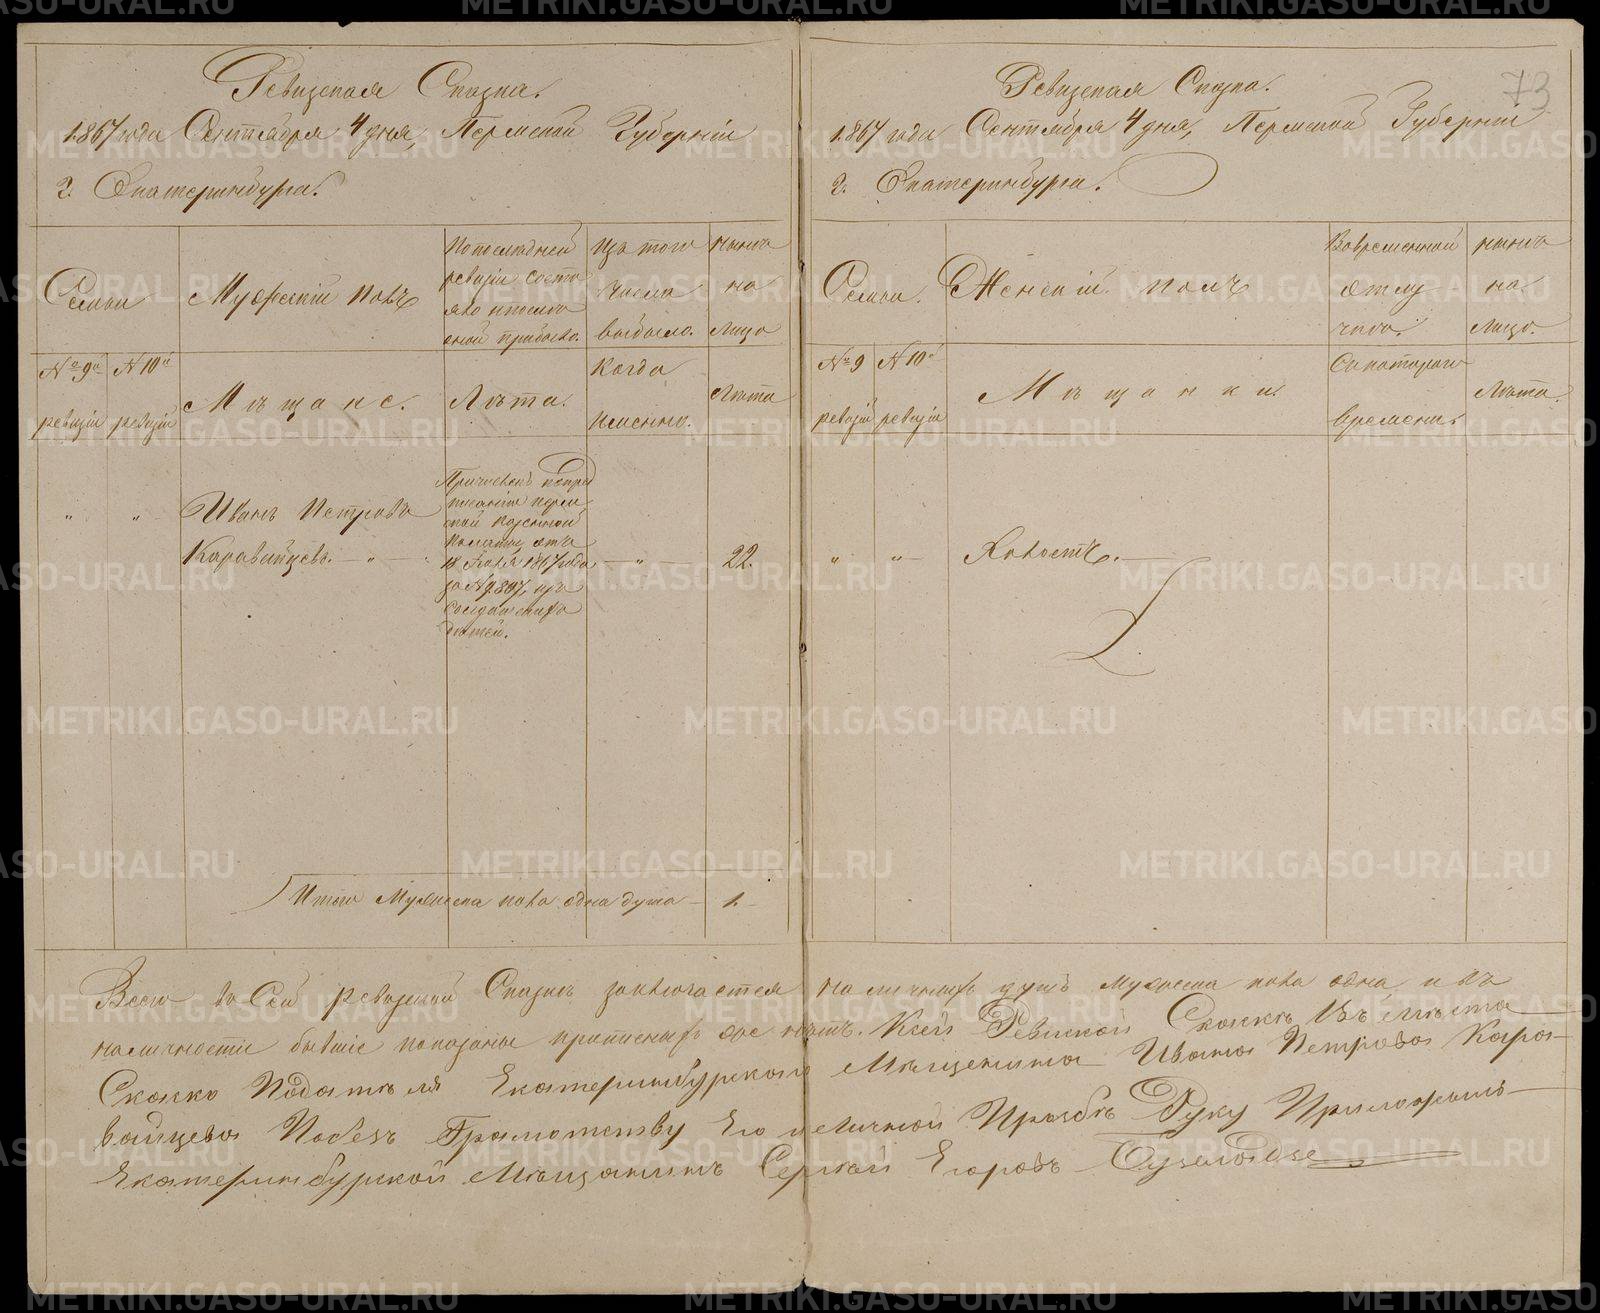 73
Ревизская Сказка.
1867 года Сентября 4 дня, Пермской Губерніи
г. Екатеринбурга.
Семьи
Мужескій полъ
По последней
ревизіи состо
яло и после
оной прибыло.
Изъ того
числа
выбыло.
Ныне
на
лицо
№ 9й
ревизіи
№ 10й
ревизіи
Мѣщане.
Лѣта.
Когда
именно.
Лѣта
" "
Иванъ Петровъ
Каравайцевъ. — " —
Причисленъ по пред
писанію Перм
ской Казенной
Палаты отъ
1867 года
за № изъ
солдатскихъ
дѣтей.
— " —
22.
Итого Мужеска пола одна душа — 1. —
Ревизская Сказка.
1867 года Сентября 4 дня, Пермской Губерніи
г. Екатеринбурга.
Семьи.
Женскій полъ
Во временной
отлу
чкѣ.
Ныне
на
лицо.
№ 9
ревизіи
№ 10й
ревизіи
Мѣщанки.
Съ котораго
времени.
Лѣта.
" " —
Холостъ. —
Всего въ Сей ревизской Сказкѣ заключается наличныхъ душъ мужеска пола одна, и въ
наличности бывшіе показаны, прописныхъ же нѣтъ. К сей Ревиской Скаскѣ Въ мѣсто
Скаско Подателя Екатеринбурскаго Мѣщенина Ивана Петрова Кара-
вайцева По безъ Грамотству Его и личной Прозбѣ Руку Приложилъ
Екатеринбурской Мѣщанинъ Сергѣй Егоровъ
METRIKI.GASO-URAL.RU